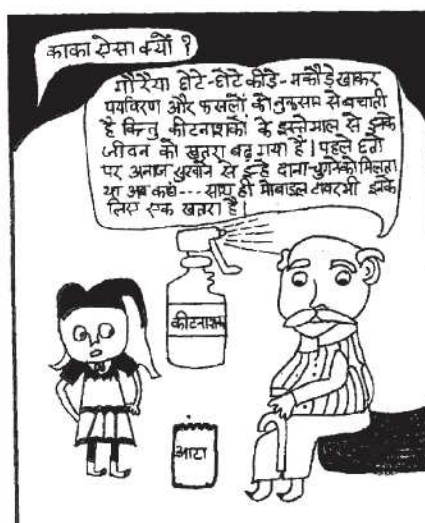 काका ऐसा क्यों ?
गौरैया छोटे-छोटे कीडे-मकौड़े खाकर
पर्यावरण और फसलों को नुकसान से बचाती
है किन्तु कीटनाशकों के इस्तेमाल से इनके
जीवन को खतरा बढ़ गया है। पहले छतों
पर अनाज सुखाने से इन्हे दाना-चुगने को मिलता
था अब कहां --- साथ ही मोबाइल टावर भी इनके
लिए एक खतरा है।
कीटनाशक
आटा